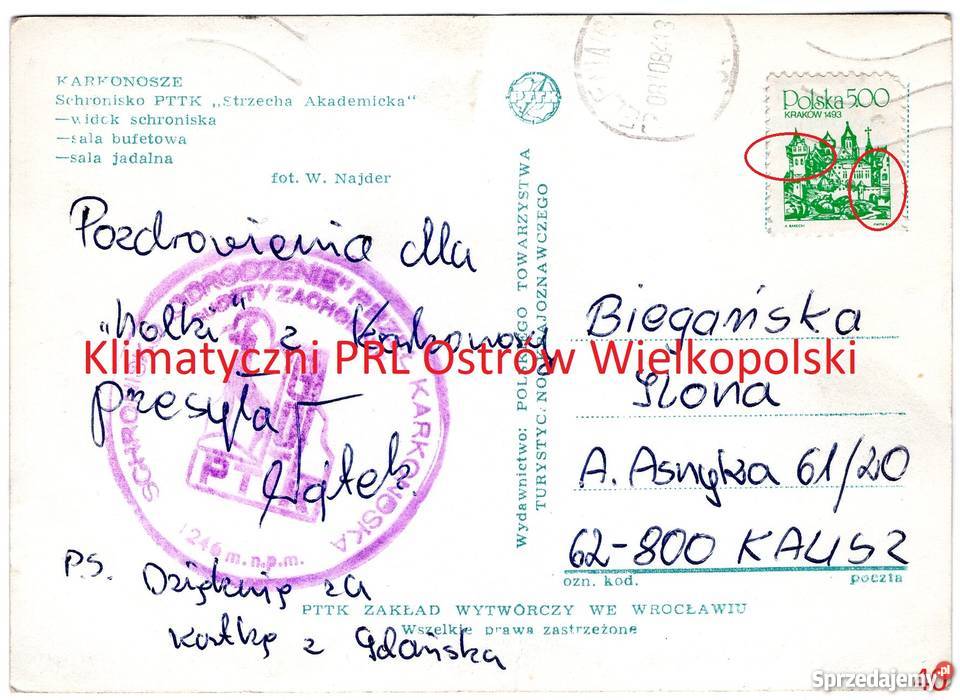 KARKONOSZE
Schronisko PTTK „Strzecha Akademicka"
—widok schroniska
—sala bufetowa
—sala jadalna
fot. W. Najder
Pozdrowienia dla
z Karkonoszy
przesyła
P.S. Dziękuję za
kartkę z Gdańska
SCHRONISKO „ODRODZENIE" KARKONOSKA
PTTK
1246 m.n.p.m.
Klimatyczni PRL Ostrów Wielkopolski
PTTK
Wydawnictwo: POLSKIEGO TOWARZYSTWA
TURYSTYC. NO-KRAJOZNAWCZEGO
Polska 5.00
KRAKÓW 1493
Biegańska
Ilona
A. Asnyka 61/20
62-800 KALISZ
ozn. kod. poczta
PTTK ZAKŁAD WYTWÓRCZY WE WROCŁAWIU
Wszelkie prawa zastrzeżone
Sprzedajemy.pl